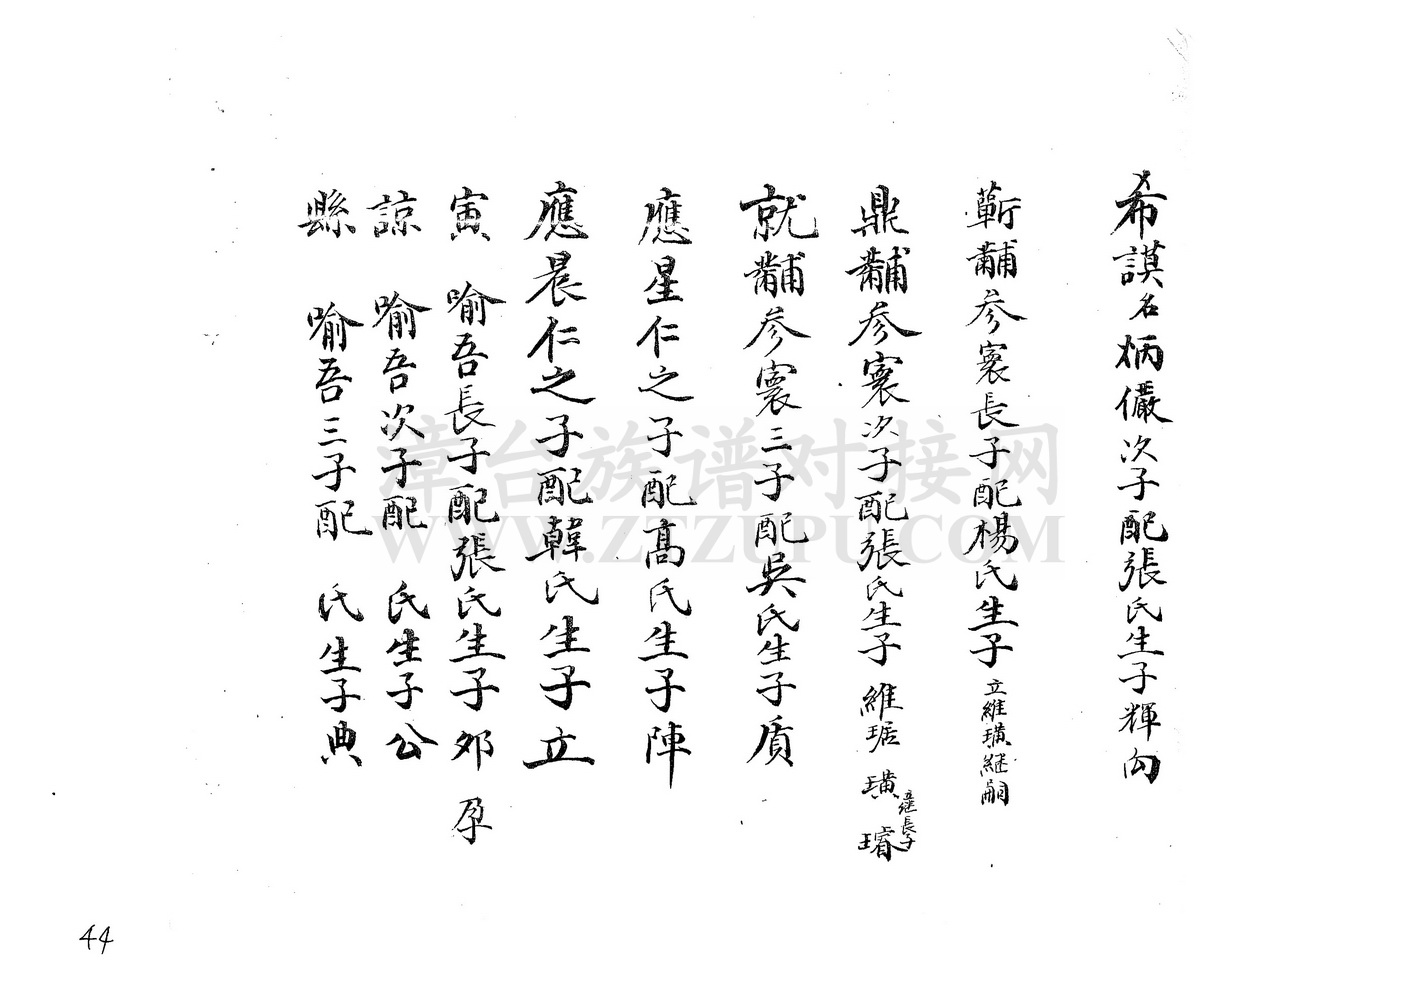 希謨名炳儼次子配張氏生子輝向
蘄黼参寰長子配楊氏生子立維璜継嗣
鼎黼参寰次子配張氏生子維琚 璜 璿
立継長子
就黼参寰三子配吳氏生子质
應星仁之子配高氏生子陣
應晨仁之子配韓氏生子立
寅 喻吾長子配張氏生子邜 孕
諒 喻吾次子配 氏生子公
縣 喻吾三子配 氏生子典
漳台族谱对接网
WWW.ZTZUPU.COM
44